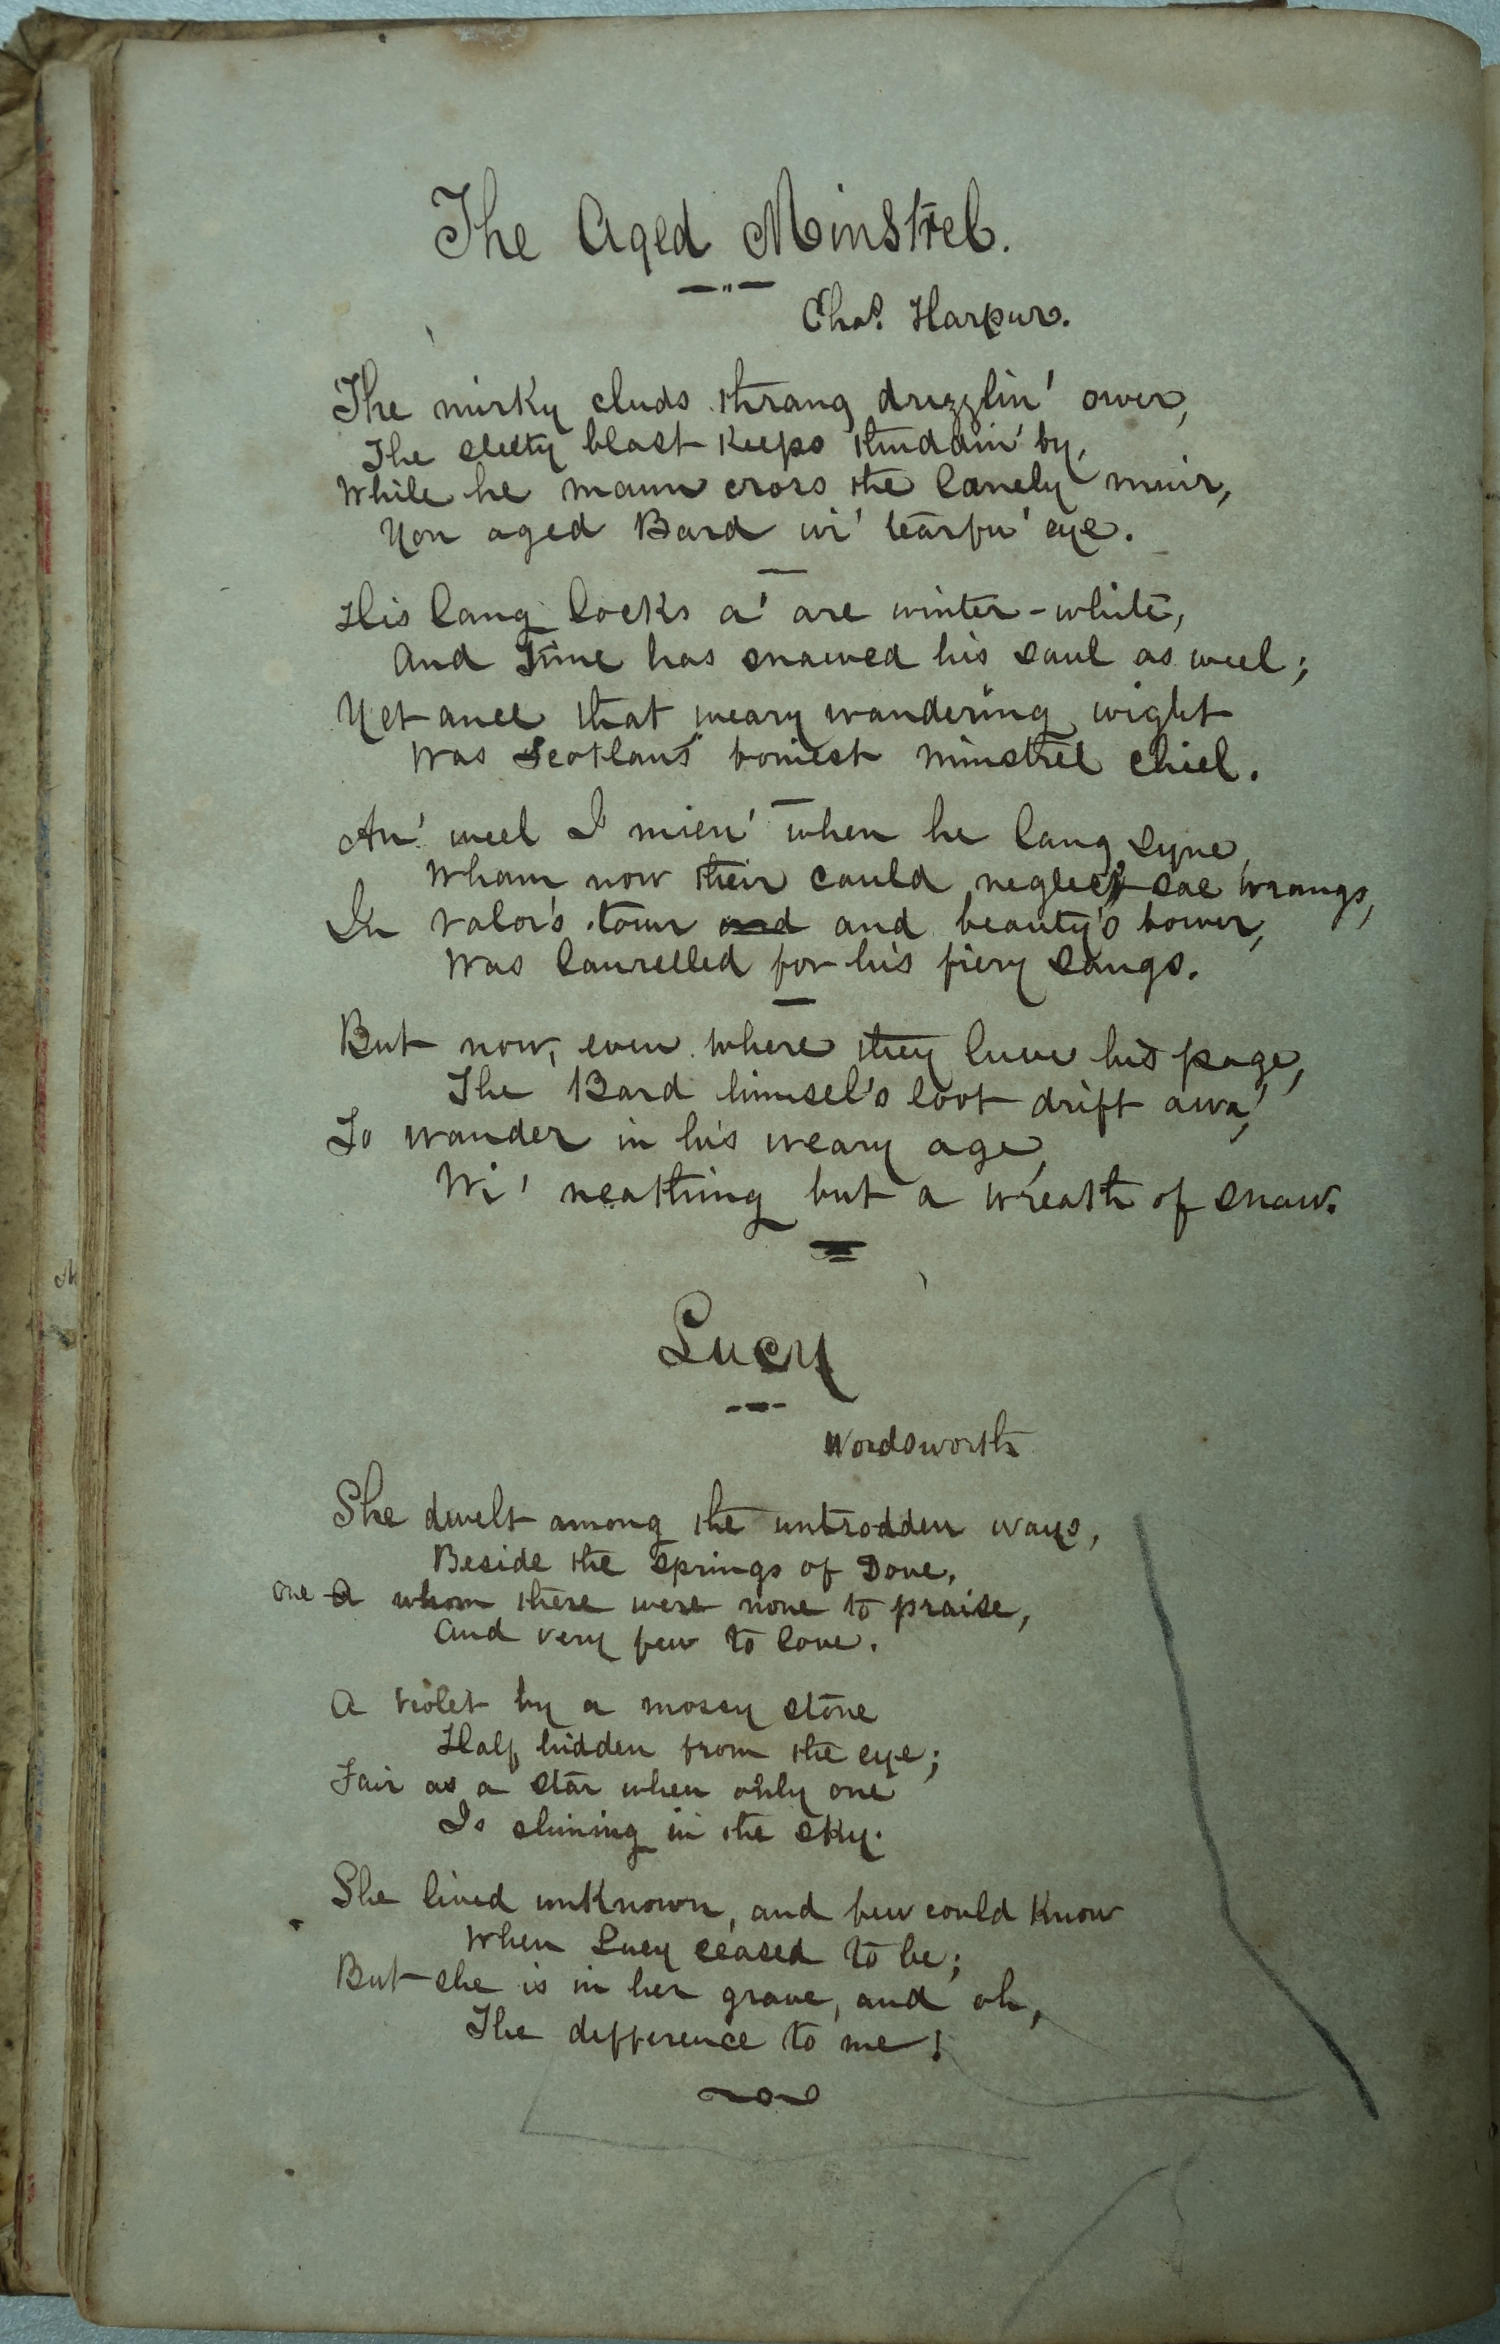 The Aged Minstrel.
Chas. Harpur.
The mirky cluds thrang drizzlin' ower,
The sleety blast keeps thuddin' by,
While he maun cross the lanely muir,
Yon aged Bard wi' tearfu' eye.
His lang locks a' are winter-white,
And Time has snawed his saul as weel;
Yet ance that weary wandering wight
Was Scotlans' boniest minstrel chiel.
An' weel I mien' when he lang syne,
Wham now their cauld neglect sae wrangs,
In valor's tour and and beauty's bower,
Was laurelled for his fiery sangs.
But now, even where they luve his page,
The Bard himsel's loot drift awa,'
To wander in his weary age,
Wi' neathing but a wreath of snaw.
Lucy
Wordsworth
She dwelt among the untrodden ways,
Beside the springs of Dove,
one A whom there were none to praise,
And very few to love.
A violet by a mossy stone
Half hidden from the eye;
Fair as a star when only one
Is shining in the sky.
She lived unknown, and few could know
When Lucy ceased to be;
But she is in her grave, and oh,
The difference to me!